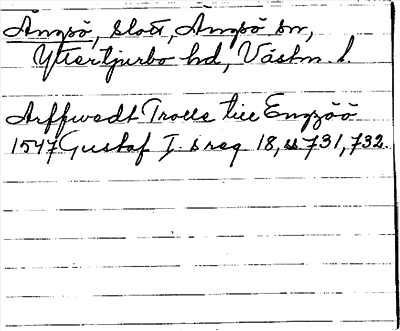 Ängsö, slott, Ängsö sn,
Yttertjurbo hd, Västm. l.
Arffwedt Trolle till Engzöö
1547 Gustaf I. s reg 18, ss 731, 732.